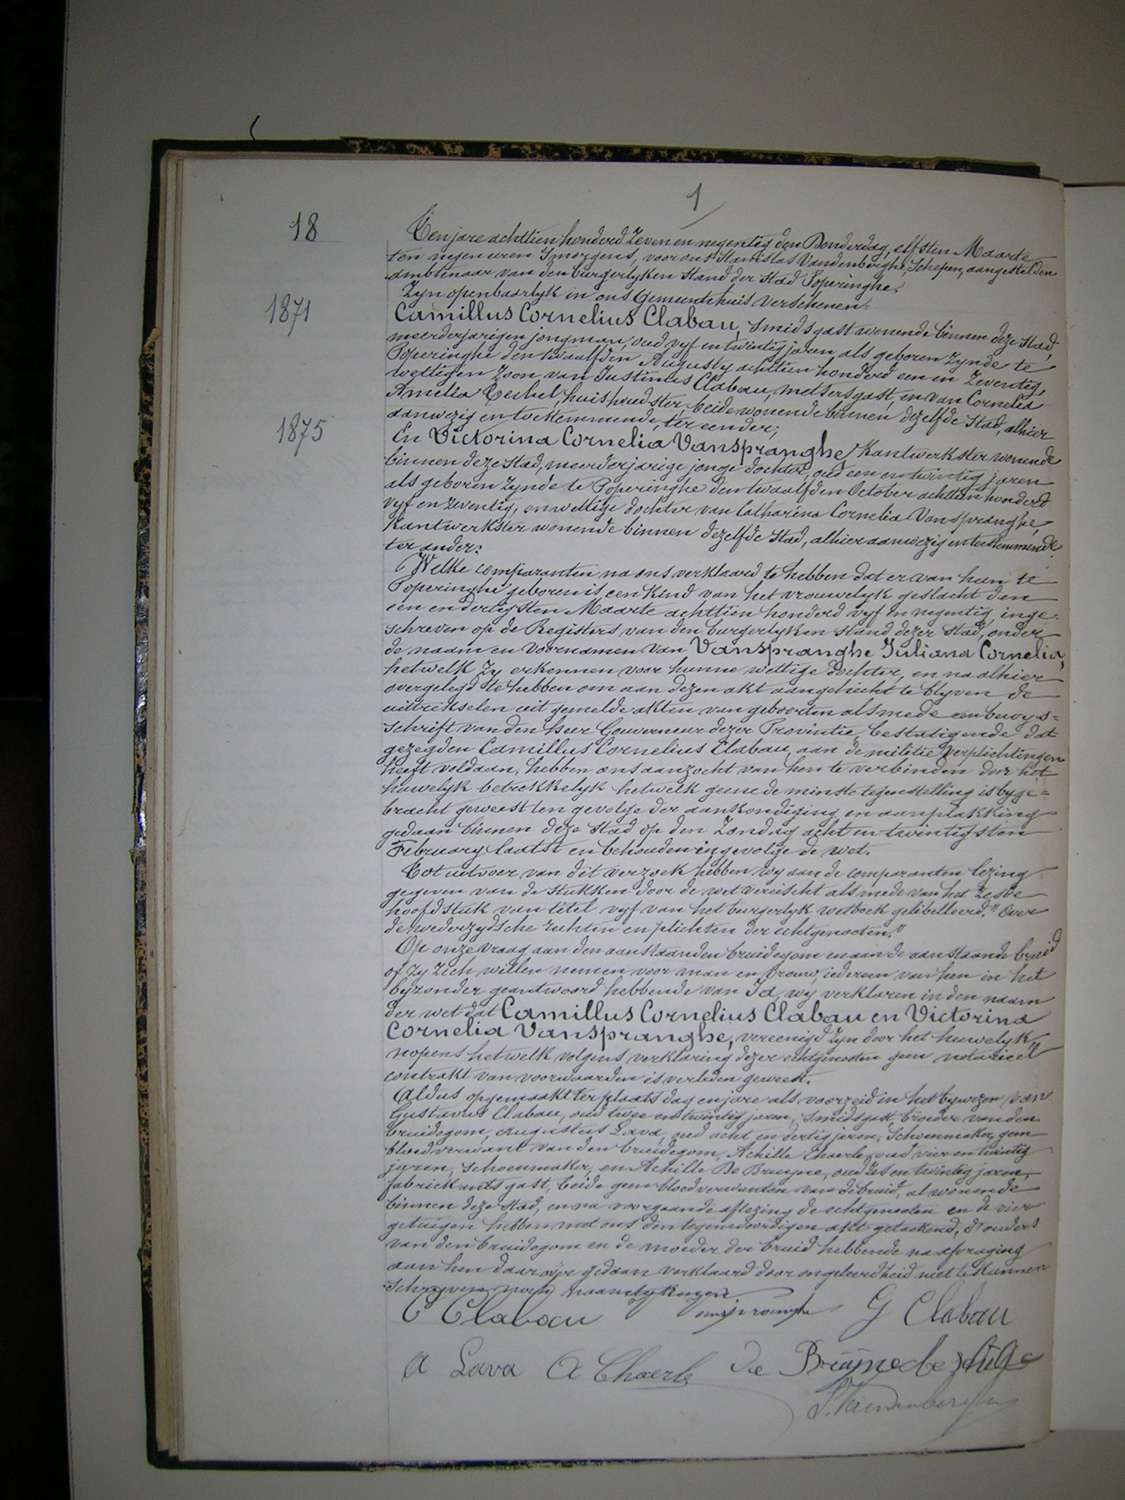 1
18
Ten jare achttien honderd zeven en negentig den Donderdag, elfsten Maarte
ten negen uren 's morgens, voor ons Stanislas Vandenberghe, Schepen, aangestelden
ambtenaar van den burgerlyken Stand der Stad Poperinghe,
Zyn openbaarlyk in ons Gemeentehuis verschenen:
1871
Camillus Cornelius Clabau, Smidsgast wonende binnen deze Stad,
meerderjarigen jongman, oud vyf en twintig jaren, als geboren zynde te
Poperinghe den twaalfden Augusty achttien honderd een en zeventig,
wettigen zoon van Justinus Clabau, metsersgast, en van Cornelia
Amelia huishoudster, beide wonende binnen dezelfde Stad, alhier
aanwezig en toestemmende, ter eender;
1875
En Victorina Cornelia Vanspranghe, Kantwerkster wonende
binnen deze Stad, meerderjarige jonge dochter, oud een en twintig jaren
als geboren zynde te Poperinghe den twaalfden October achttien honderd
vyf en zeventig, onwettige dochter van Catharina Cornelia Vanspranghe,
Kantwerkster wonende binnen dezelfde Stad, alhier aanwezig en toestemmende
ter ander.
Welke comparanten na ons verklaard te hebben dat er van hun te
Poperinghe geboren is een kind van het vrouwelyk geslacht den
een en dertigsten Maarte achttien honderd vyf en negentig, inge-
schreven op de Registers van den burgerlyken stand dezer Stad, onder
de naam en voornamen van Vanspranghe Juliana Cornelia,
hetwelk zy erkennen voor hunne wettige dochter, en na alhier
overgelegd te hebben om aan dezen akt aangehecht te blyven de
uittreksels uit gemelde akten van geboorten alsmede een bewys=
schrift van den heer Gouverneur dezer Provintie, bestatigende dat
gezegden Camillus Cornelius Clabau, aan de militie verplichtingen
heeft voldaan, hebben ons aanzocht van hen te verbinden door het
huwelyk betrekkelyk hetwelk geene de minste tegenstelling is byge=
bracht geweest ten gevolge der aankondiging en aanplakking
gedaan binnen deze Stad op den Zondag acht en twintigsten
February laatst en behouden ingevolge de wet.
Tot uitvoer van dit verzoek hebben wy aan de comparanten lezing
gegeven van de stukken door de wet vereischt alsmede van het zesde
hoofdstuk van titel vyf van het burgerlyk wetboek gelibelleerd: "Over
de wederzydsche rechten en plichten der echtgenooten."
Op onze vraag aan den aanstaanden bruidegom en aan de aanstaande bruid
of zy zich willen nemen voor man en vrouw, iedereen van hen in het
byzonder geantwoord hebbende van Ja, wy verklaren in den naam
der wet dat Camillus Cornelius Clabau en Victorina
Cornelia Vanspranghe, vereenigd zyn door het huwelyk
nopens hetwelk volgens verklaring dezer echtgenooten geen notarieel
contrakt van voorwaarden is verleden geweest.
Aldus opgemaakt ter plaats dag en jare als voorzeid in het bywezen van
Gustavus Clabau, oud twee en twintig jaren, Smidsgast, broeder van den
bruidegom, Augustus Lava, oud acht en dertig jaren, Schoenmaker, geen
bloedverwant van den bruidegom, Achille Chaerle, oud vier en twintig
jaren, Schoenmaker, en Achille De Bruyne, oud zes en twintig jaren,
fabriekantsgast, beide geen bloedverwanten van de bruid, al wonende
binnen deze Stad, en na voorgaande aflezing de echtgenooten en de vier
getuigen hebben met ons den tegenwoordigen akt geteekend, d'ouders
van den bruidegom en de moeder der bruid hebbende na afvraging
aan hen daarover gedaan verklaard door ongeleerdheid niet te kunnen
schryven noch naamteekenen
C Clabau G Clabau
A Lava A Chaerle De Bruijne
S. Vandenberghe